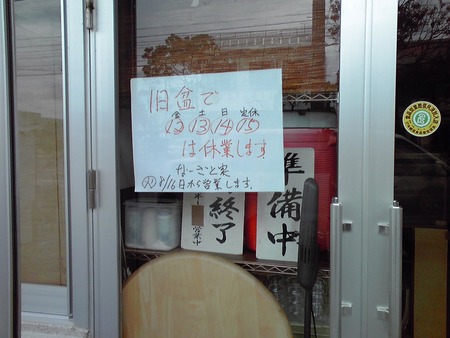 旧盆で
金 土 日 定休
12 13 14 15
は休業します
なーごと家
(火) 8/16日から営業します。
終了
営業中
準備中